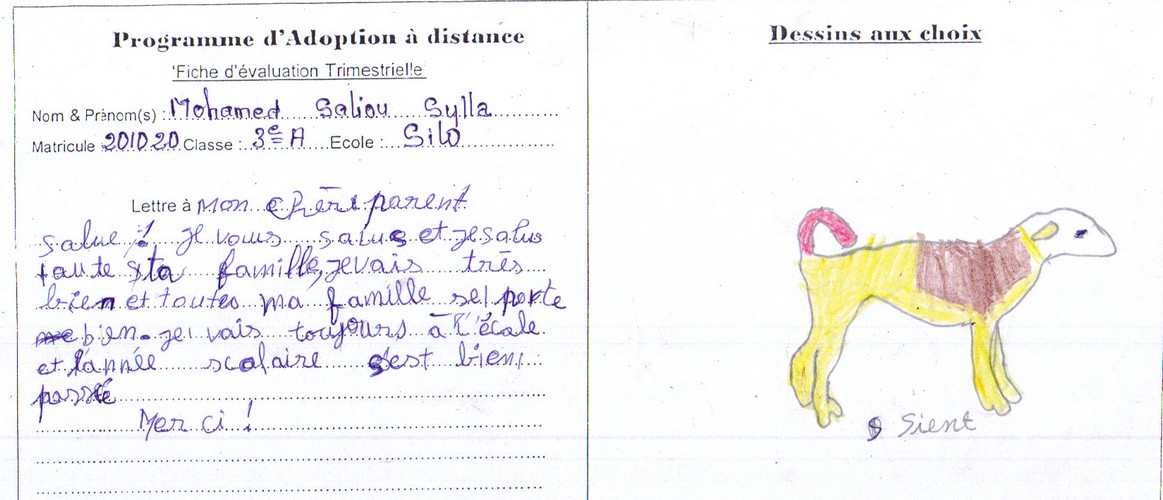 Programme d'Adoption à distance
Fiche d'évaluation Trimestrielle
Nom & Prènom(s) : Mohamed Saliou Sylla
Matricule 201020 Classe : 3e A Ecole : Silo
Lettre à Mon chèri parent
salue ! je vous salue et je salus
toute ta famille, je vais très
bien et toutes ma famille se porte
bien. je vais toujours à l'école
et l'année scolaire s'est bien
passé
Mer ci !
Dessins aux choix
Sient